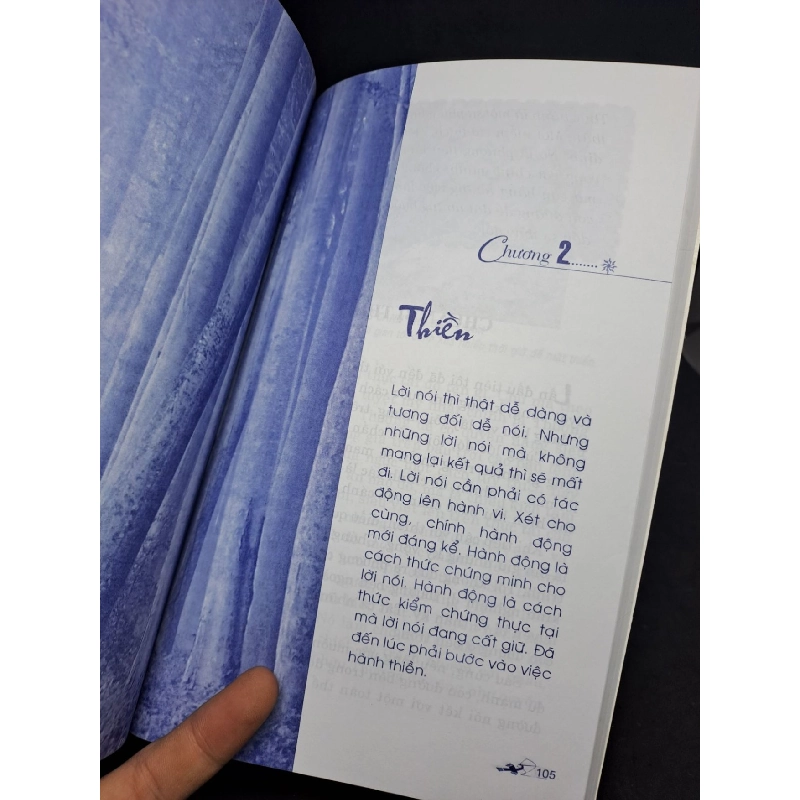 Chương 2.......
Thiền
Lời nói thì thật dễ dàng và
tương đối dễ nói. Nhưng
những lời nói mà không
mang lại kết quả thì sẽ mất
đi. Lời nói cần phải có tác
động lên hành vi. Xét cho
cùng, chính hành động
mới đáng kể. Hành động là
cách thức chứng minh cho
lời nói. Hành động là cách
thức kiểm chứng thực tại
mà lời nói đang cất giữ. Đã
đến lúc phải bước vào việc
hành thiền.
105